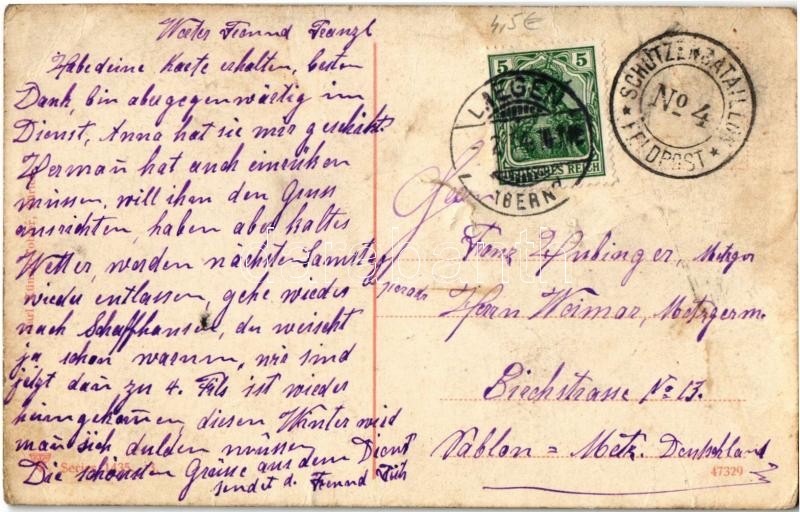 4,5€
Werter Freund Franzl
Habe deine Karte erhalten, besten
Dank, bin aber gegenwärtig im
Dienst, Anna hat sie mir geschikt.
Herman̄ hat auch einrüken
müssen, will ihm den Gruss
ausrichten, haben aber kaltes
Wetter, werden nächsten Samst
wieder entlassen, gehe wieder
nach Schaffhausen, du weisst
ja schon warum, wir sind
jetzt dan̄ zu 4. Fils ist wieder
heimgekom̄en diesen Winter wird
man̄ sich dulden müssen
Die schönsten Grüsse aus dem Dienst
sendet d. Freund
5
DEUTSCHES REICH
LAEGEN
(BERN)
SCHÜTZENBATAILLON
No 4
* FELDPOST *
Franz Hubinger, Metzger
Herrn Weimar, Metzgerm.
No 13.
Sablon = Metz. Deutschland
Serie 1435
47329
darabanth